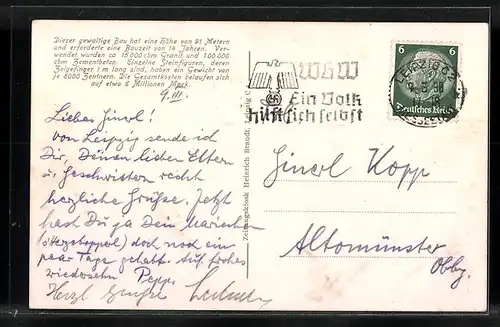 Dieser gewaltige Bau hat eine Höhe von 91 Metern
und erforderte eine Bauzeit von 14 Jahren. Ver-
wendet wurden ca 15 000 cbm Granit und 100 000
cbm Zementbeton. Einzelne Steinfiguren, deren
Zeigefinger 1 m lang sind, haben ein Gewicht von
je 8000 Zentnern. Die Gesamtkosten belaufen sich
auf etwa 6 Millionen Mark.
9.III.
Von Leipzig sende ich
Dir, Deinen lieben Eltern
u. Geschwistern recht
herzliche Grüße. Jetzt
hast Du ja Dein
doch noch ein
paar Tage gehabt. Auf frohes
wiedersehn Pepp.
Herzl
Zeitungskiosk Heinrich Brandt, Leipzig C
WHW
Ein Volk
hilft sich selbst
6 6
Deutsches Reich
LEIPZIG C2
Kopp
Altomünster
Obby.